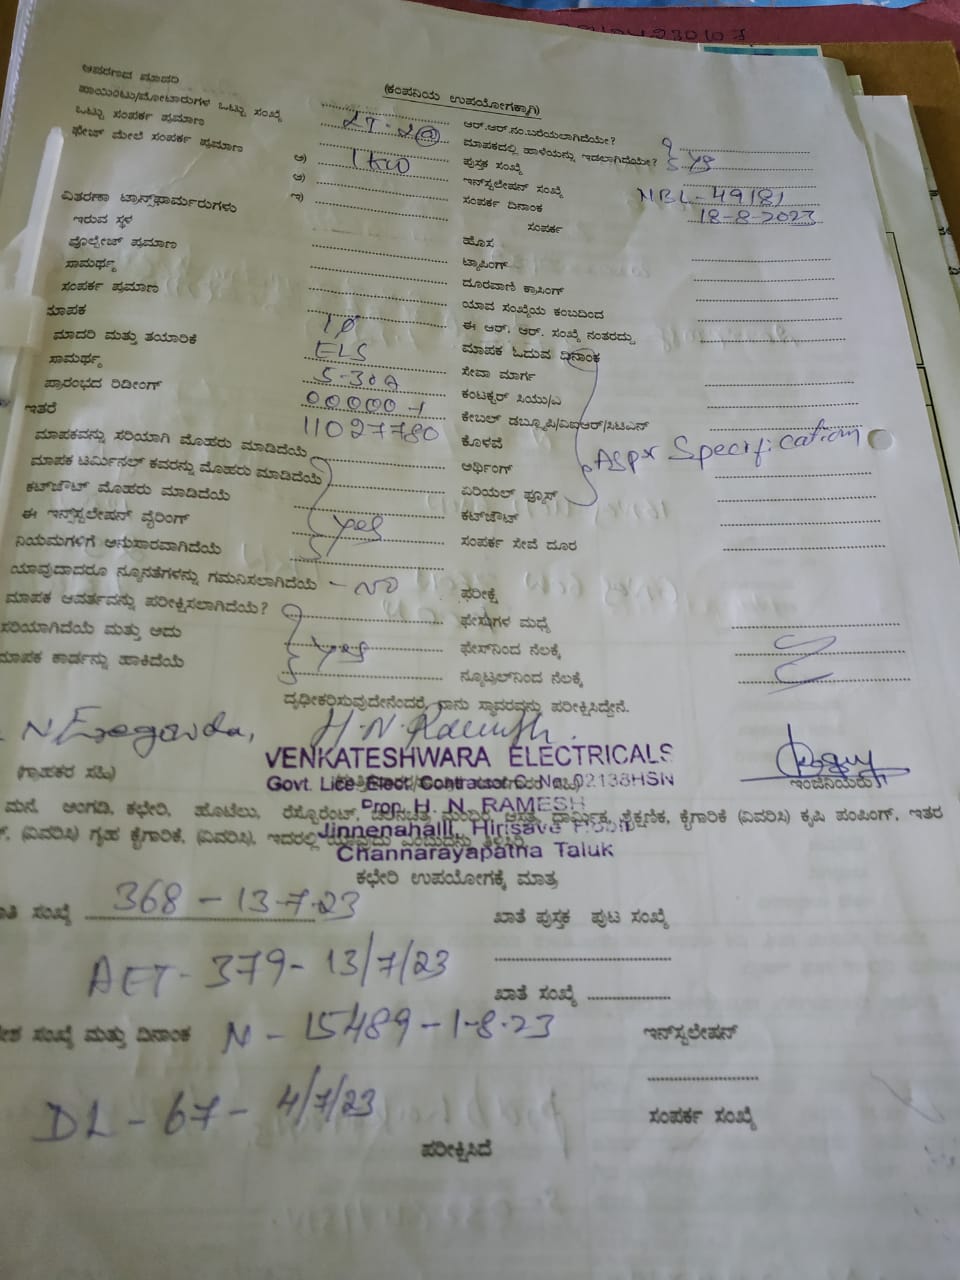 (ಕಂಪನಿಯ ಉಪಯೋಗಕ್ಕಾಗಿ)
ಆವರಣದ ಮಾದರಿ
ಪಾಯಿಂಟು/ಮೋಟಾರುಗಳ ಒಟ್ಟು ಸಂಖ್ಯೆ
ಆರ್.ಆರ್.ನಂ.ಬರೆಯಲಾಗಿದೆಯೇ?
ಒಟ್ಟು ಸಂಪರ್ಕ ಪ್ರಮಾಣ LT-2(a) ಮಾಪಕದಲ್ಲಿ ಹಾಳೆಯನ್ನು ಇಡಲಾಗಿದೆಯೇ? yes
ಫೇಜ್ ಮೇಲೆ ಸಂಪರ್ಕ ಪ್ರಮಾಣ ಅ) 1KW ಪುಸ್ತಕ ಸಂಖ್ಯೆ
ಆ) ಇನ್‌ಸ್ಟಲೇಷನ್ ಸಂಖ್ಯೆ NBL-49181
ಇ) ಸಂಪರ್ಕ ದಿನಾಂಕ 18-8-2023
ವಿತರಣಾ ಟ್ರಾನ್ಸ್‌ಫಾರ್ಮರುಗಳು ಸಂಪರ್ಕ
ಇರುವ ಸ್ಥಳ ಹೊಸ
ವೋಲ್ಟೇಜ್ ಪ್ರಮಾಣ ಟ್ಯಾಪಿಂಗ್
ಸಾಮರ್ಥ್ಯ ದೂರವಾಣಿ ಕ್ರಾಸಿಂಗ್
ಸಂಪರ್ಕ ಪ್ರಮಾಣ ಯಾವ ಸಂಖ್ಯೆಯ ಕಂಬದಿಂದ
ಮಾಪಕ 1Ø ಈ ಆರ್. ಆರ್. ಸಂಖ್ಯೆ ನಂತರದ್ದು
ಮಾದರಿ ಮತ್ತು ತಯಾರಿಕೆ ELS ಮಾಪಕ ಓದುವ ದಿನಾಂಕ
ಸಾಮರ್ಥ್ಯ 5-30A ಸೇವಾ ಮಾರ್ಗ
ಪ್ರಾರಂಭದ ರಿಡೀಂಗ್ 00000-1 ಕಂಟಕ್ಟರ್ ಸಿಯು/ಎ
ಇತರೆ 11027780 ಕೇಬಲ್ ಡಬ್ಲ್ಯೂಪಿ/ವಿಐಆರ್/ಸಿಟಿಎನ್
ಮಾಪಕವನ್ನು ಸರಿಯಾಗಿ ಮೊಹರು ಮಾಡಿದೆಯೆ ಕೊಳವೆ
ಮಾಪಕ ಟರ್ಮಿನಲ್ ಕವರನ್ನು ಮೊಹರು ಮಾಡಿದೆಯೆ ಅರ್ಥಿಂಗ್ Asper Specification
ಕಟ್‌ಔಟ್ ಮೊಹರು ಮಾಡಿದೆಯೆ ಏರಿಯಲ್ ಫ್ಯೂಸ್
ಈ ಇನ್‌ಸ್ಟಲೇಷನ್ ವೈರಿಂಗ್ yes ಕಟ್‌ಔಟ್
ನಿಯಮಗಳಿಗೆ ಅನುಸಾರವಾಗಿದೆಯೆ ಸಂಪರ್ಕ ಸೇವೆ ದೂರ
ಯಾವುದಾದರೂ ನ್ಯೂನತೆಗಳನ್ನು ಗಮನಿಸಲಾಗಿದೆಯೆ - NO ಪರೀಕ್ಷೆ
ಮಾಪಕ ಆವರ್ತವನ್ನು ಪರೀಕ್ಷಿಸಲಾಗಿದೆಯೆ? ಫೇಸುಗಳ ಮಧ್ಯೆ
ಸರಿಯಾಗಿದೆಯೆ ಮತ್ತು ಅದು yes ಫೇಸ್‌ನಿಂದ ನೆಲಕ್ಕೆ
ಮಾಪಕ ಕಾರ್ಡನ್ನು ಹಾಕಿದೆಯೆ ನ್ಯೂಟ್ರಲ್‌ನಿಂದ ನೆಲಕ್ಕೆ
ದೃಢೀಕರಿಸುವುದೇನೆಂದರೆ, ನಾನು ಸ್ಥಾವರವನ್ನು ಪರೀಕ್ಷಿಸಿದ್ದೇನೆ.
H.N.Ramesh
VENKATESHWARA ELECTRICALS
(ಗ್ರಾಹಕರ ಸಹಿ) Govt. Lice. Elect. Contractor C. No. 02138HSN ಇಂಜಿನಿಯರು
Prop. H. N. RAMESH
ಮನೆ, ಅಂಗಡಿ, ಕಛೇರಿ, ಹೊಟೆಲು, ರೆಸ್ಟೊರೆಂಟ್, ಧಾರ್ಮಿಕ, ಶೈಕ್ಷಣಿಕ, ಕೈಗಾರಿಕೆ (ವಿವರಿಸಿ) ಕೃಷಿ ಪಂಪಿಂಗ್, ಇತರ
Jinnenahalli, Hirisave
(ವಿವರಿಸಿ) ಗೃಹ ಕೈಗಾರಿಕೆ, (ವಿವರಿಸಿ),
Channarayapatna Taluk
ಕಛೇರಿ ಉಪಯೋಗಕ್ಕೆ ಮಾತ್ರ
ಸಂಖ್ಯೆ 368-13-7-23 ಖಾತೆ ಪುಸ್ತಕ ಪುಟ ಸಂಖ್ಯೆ
AET-379-13/7/23
ಖಾತೆ ಸಂಖ್ಯೆ
ಸಂಖ್ಯೆ ಮತ್ತು ದಿನಾಂಕ N-15489-1-8-23 ಇನ್‌ಸ್ಟಲೇಷನ್
DL-67-4/7/23 ಸಂಪರ್ಕ ಸಂಖ್ಯೆ
ಪರೀಕ್ಷಿಸಿದೆ